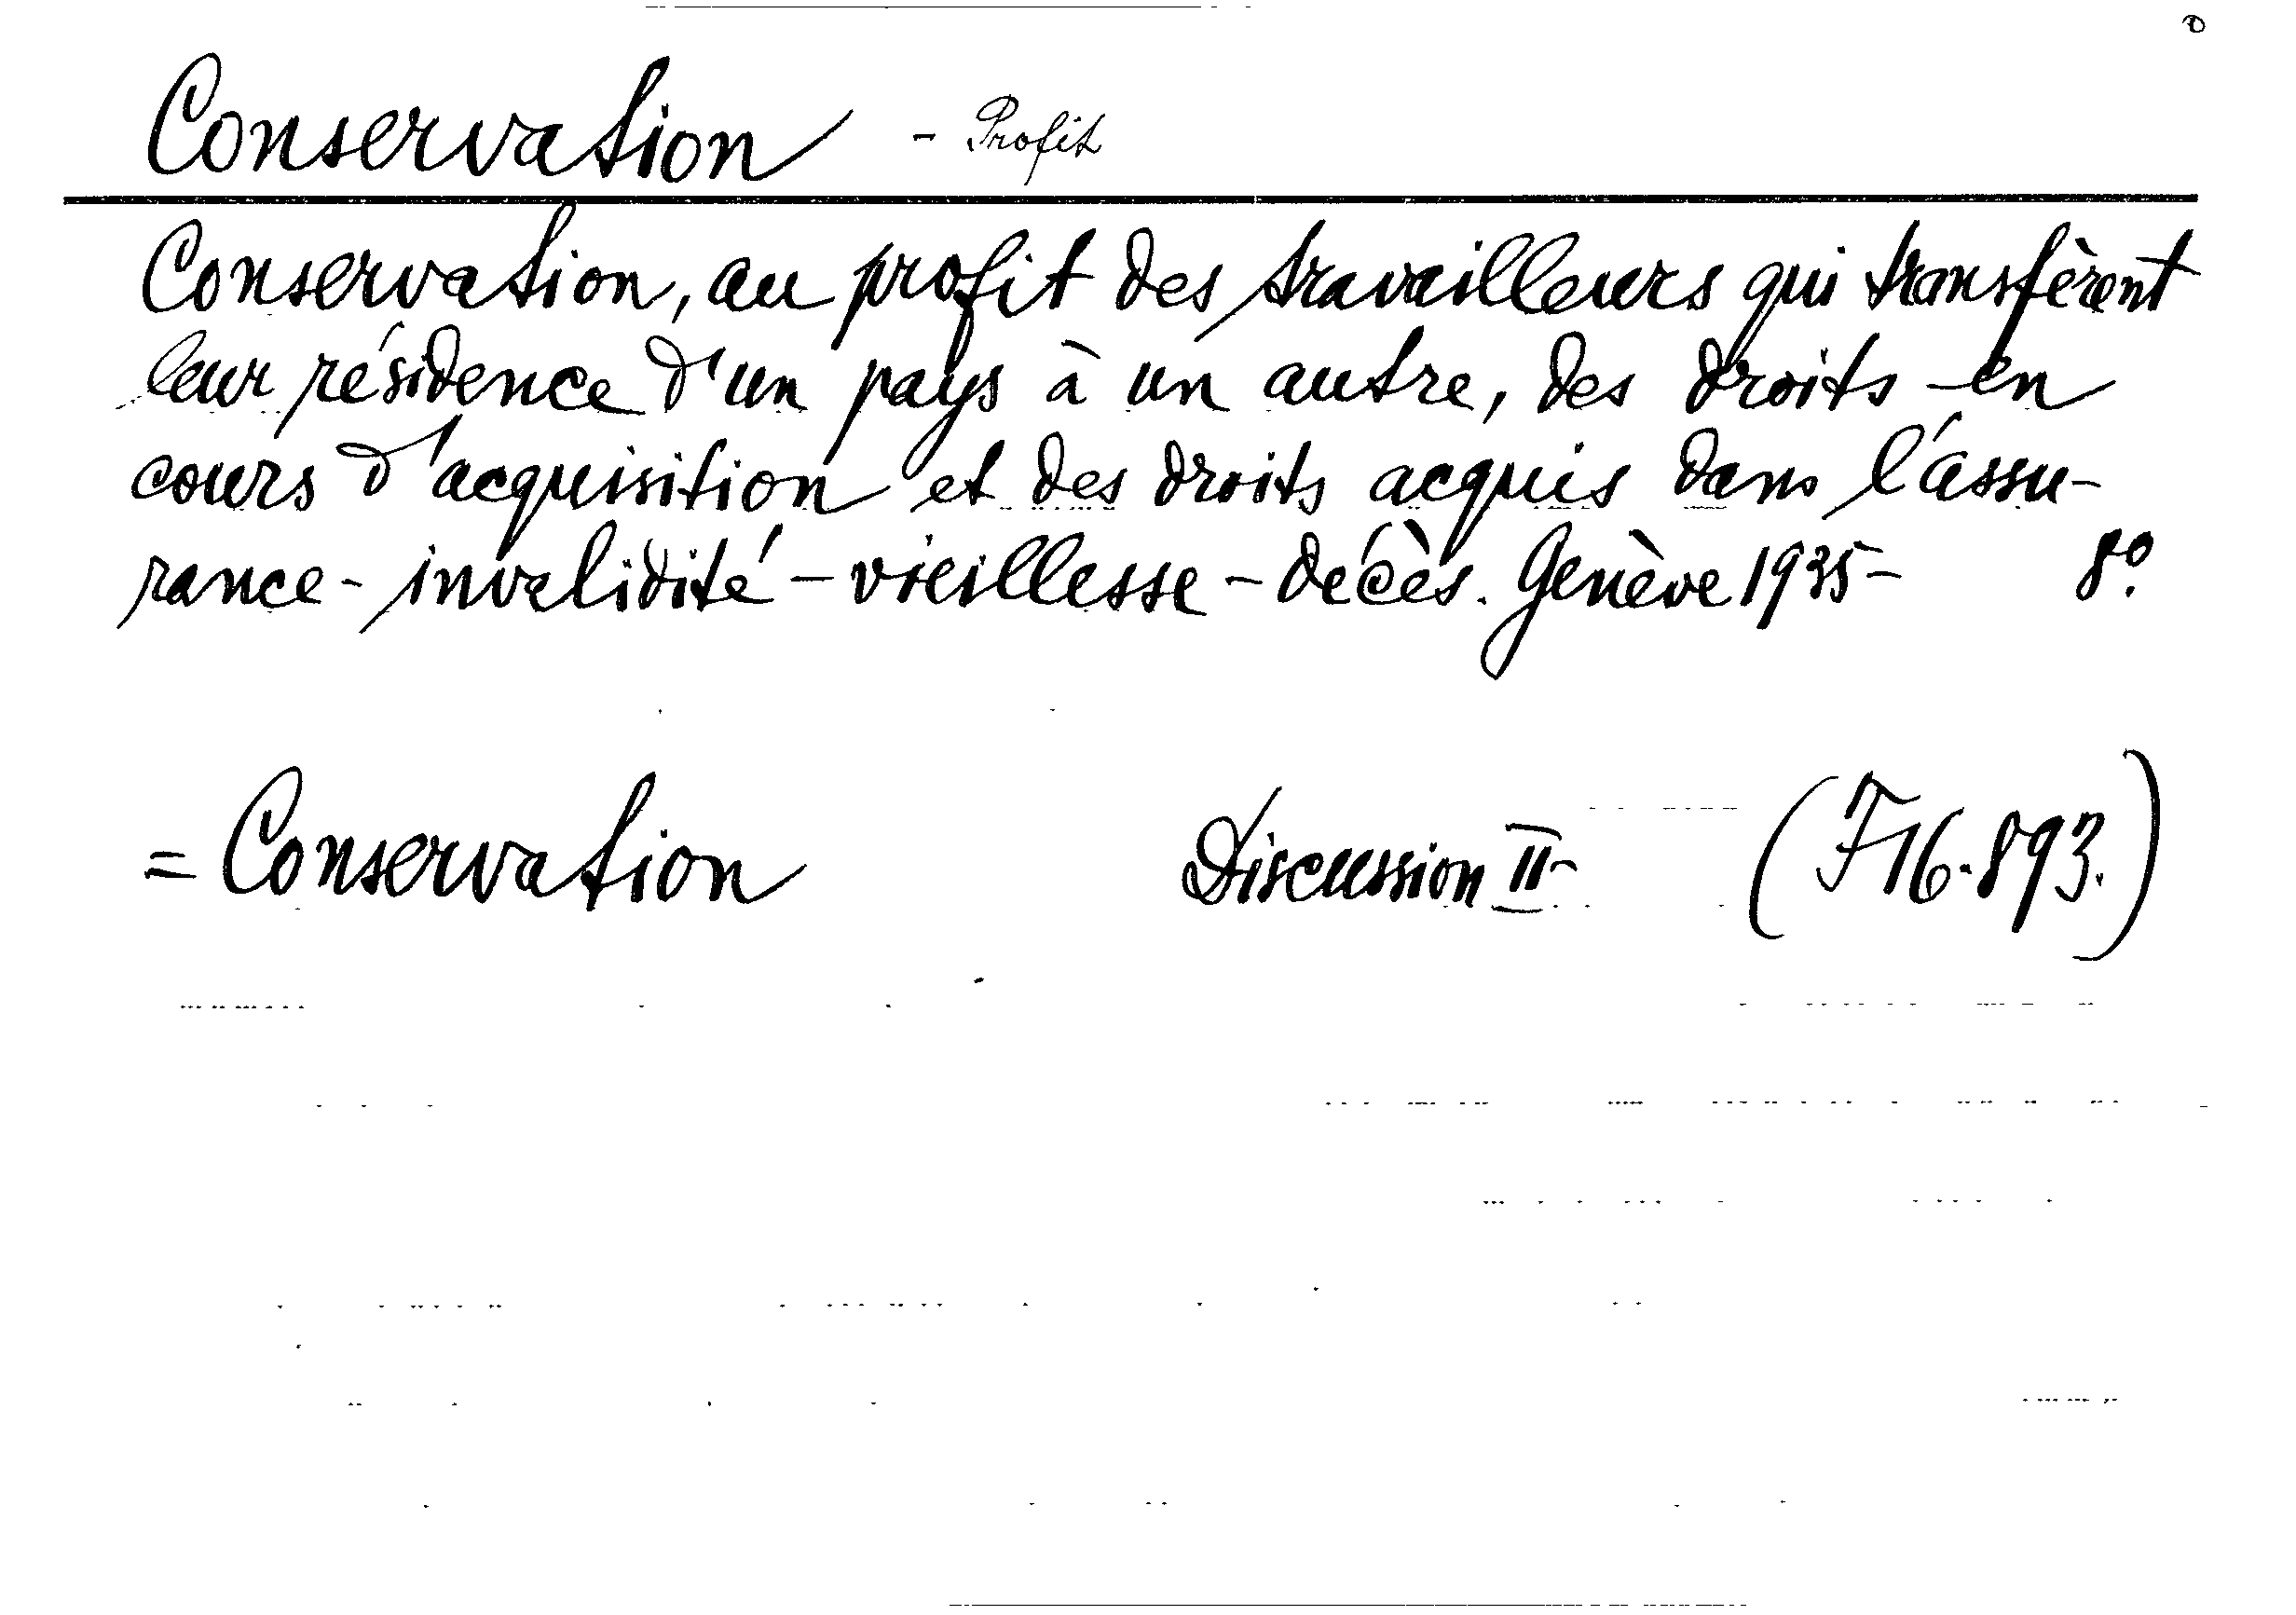 Conservation - Profit
Conservation, au profit des travailleurs qui transfèrent
leur résidence d'un pays à un autre, des droits en
cours d'acquisition et des droits acquis dans l'assu-
rance-invalidité-vieillesse-décès. Genève 1935- 8º.
= Conservation Discussion II- (F16.893.)